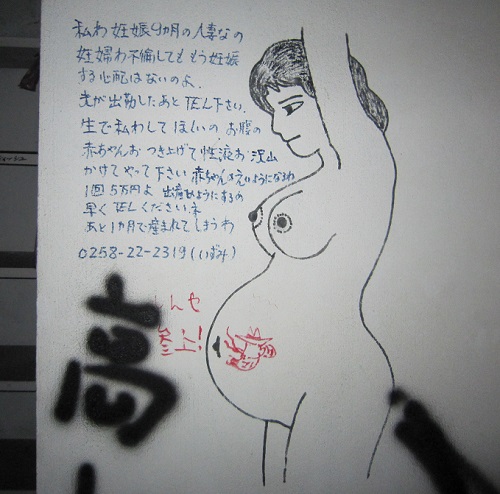 私わ妊娠9カ月の人妻なの
妊婦わ不倫してももう妊娠
する心配はないのよ.
夫が出勤したあとTEL下さい.
生で私わしてほしいの お腹の
赤ちゃんおつき上げて性液お沢山
かけてやって下さい 赤ちゃん
1回5万円よ
早くTELくださいネ
あと1カ月で産まれてしまうわ
0258-22-2319(いずみ)
んせ
参上!